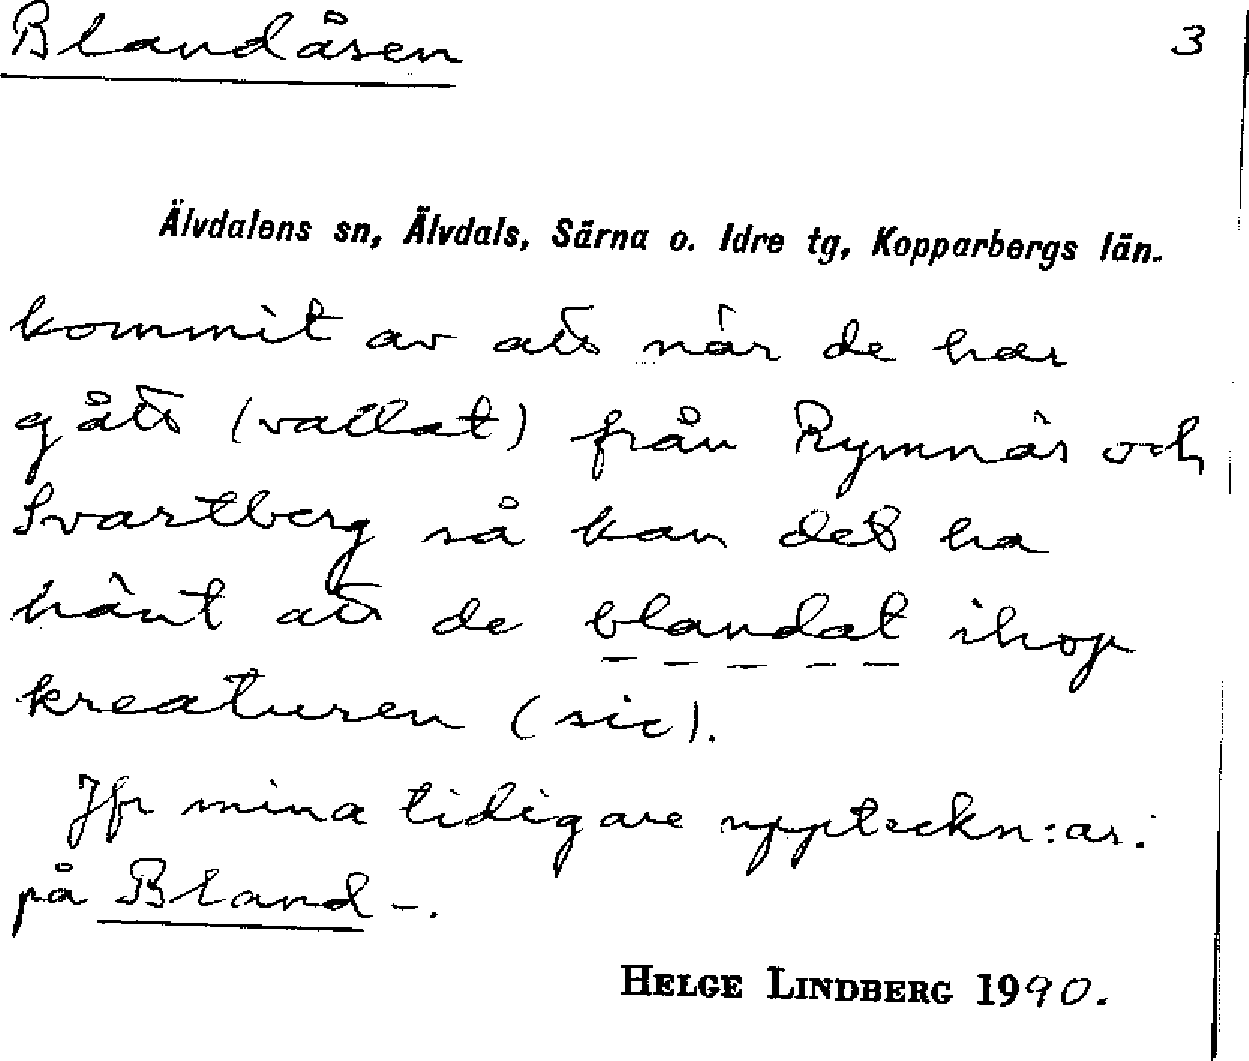 Blandåsen 3
Älvdalens sn, Älvdals, Särna o. Idre tg, Kopparbergs län.
kommit av att när de har
gått (vallat) från Rymnäs och
Svartberg så kan det ha
hänt att de blandat ihop
kreaturen (sic).
Jfr mina tidigare uppteckn:ar.
på Bland-.
HELGE LINDBERG 1990.